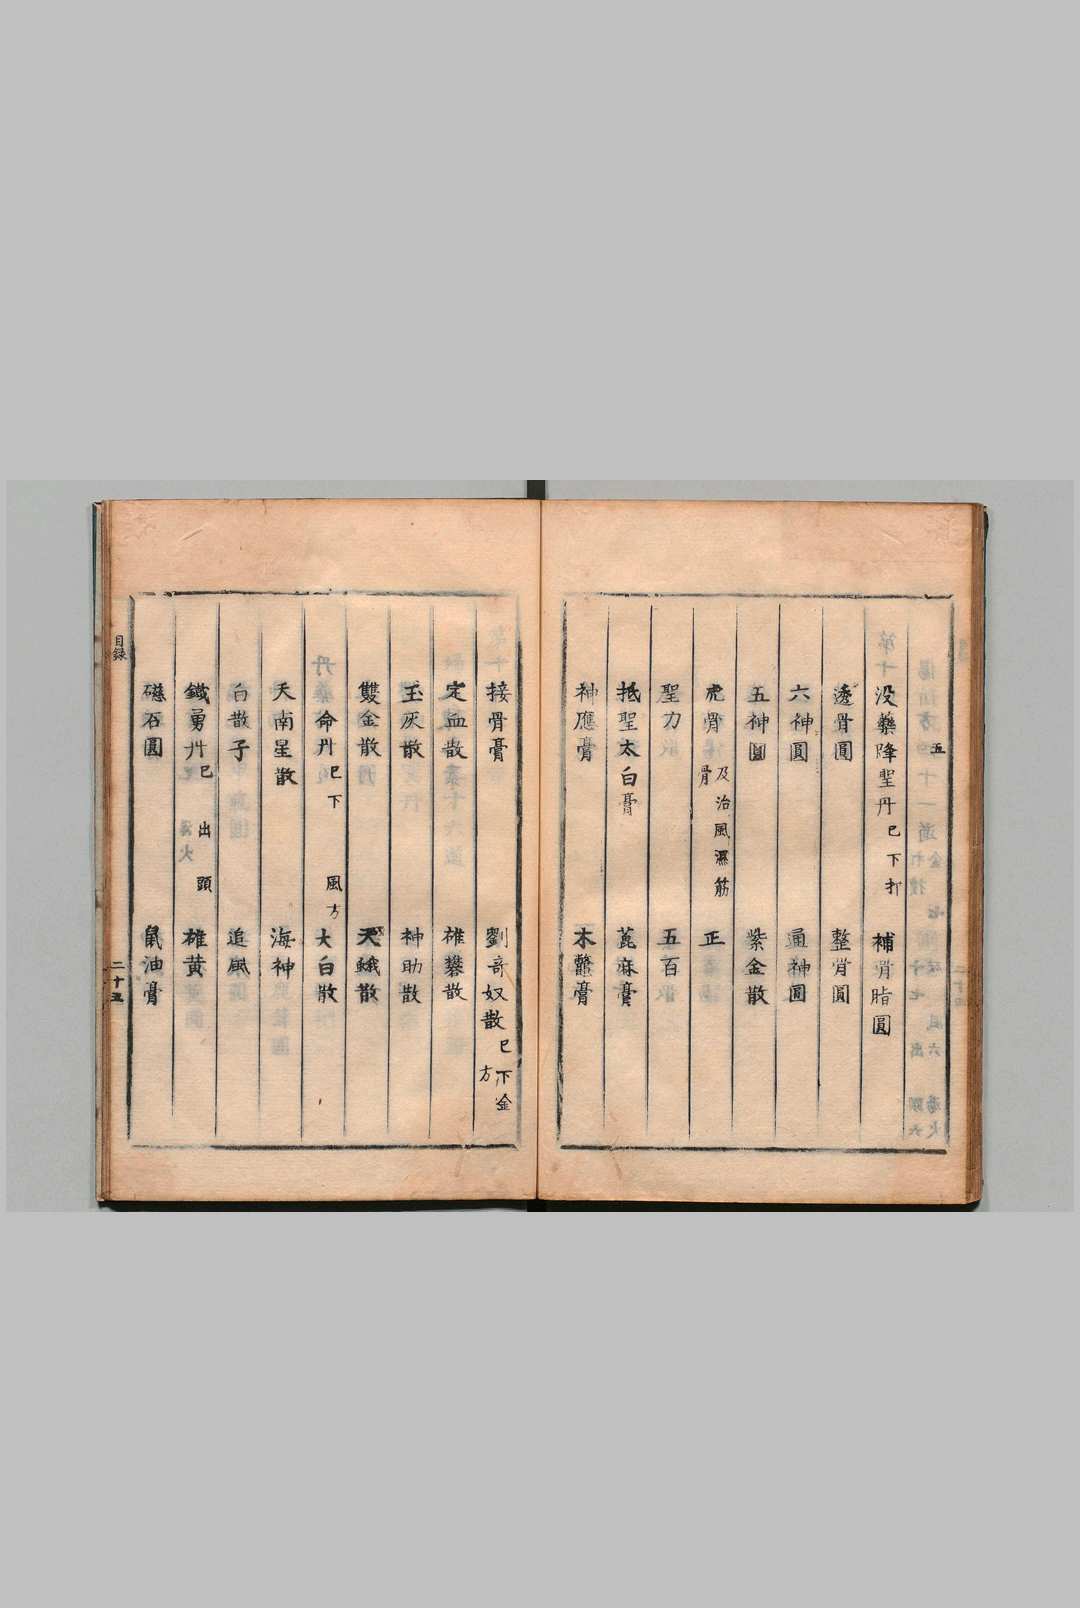 五
没藥降聖丹 已下打 補骨脂圓
透骨圓 整骨圓
六神圓 通神圓
五神圓 紫金散
虎骨 及治風濕筋骨 正
聖力 五百
抵聖太白膏 萆麻膏
神應膏 木鼈膏
接骨膏 劉寄奴散 已下金方
定血散 雄礬散
玉灰散 神助散
雙金散 天蛾散
命丹 已下風方 太白散
天南星散 海神
白散子 追風
鐵勇丹 已出頭 雄黄
磁石圓 鼠油膏
目録
二十五